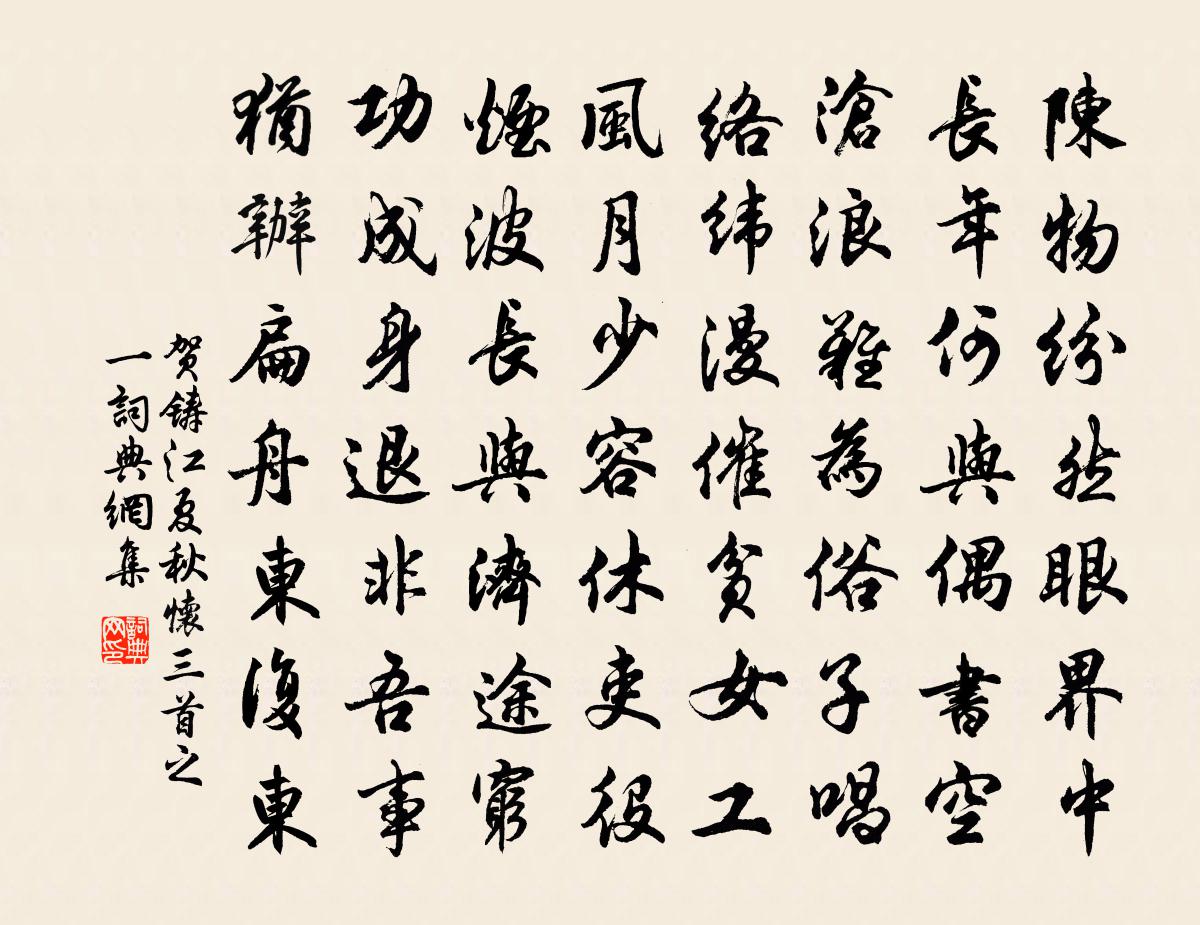 陳物紛然眼界中
長年何與偶書空
滄浪難為俗子唱
絡緯漫催貧女工
風月少容休吏役
煙波長與濟途窮
功成身退非吾事
猶辦扁舟東復東
贺鑄江夏秋懷三首之
一詞典網集
詞典
网印